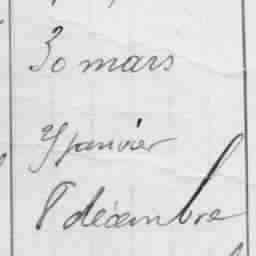 30 mars
janvier
8 décembre